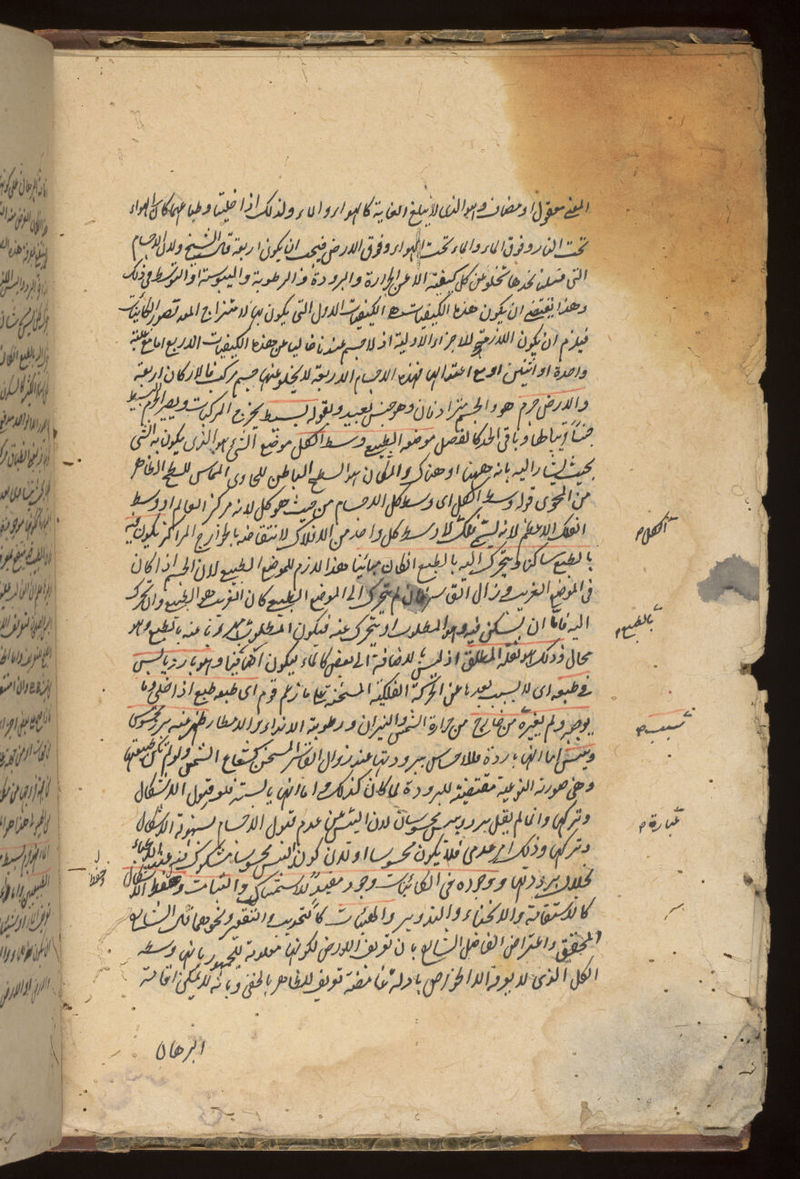 المعنى معقولا ومضاف وهو الذى لا يبلغ الغاية كالهواء والماء ولذلك اذا خليتا وطباعهما كان الهواء
تحت النار وفوق الماء والماء تحت الهواء وفوق الارض فيجب ان يكون اربعة قال الشيخ ولان الاجسام
التى قبلنا نجدها تخلو عن كل كيفية الا عن الحرارة والبرودة والرطوبة واليبوسة او التوسط فى ذلك
وهذا يقتضى ان يكون هذه الكيفيات هى الكيفيات الاول التى يكون بها الامتزاج المعد لصور الكائنات
فيلزم ان يكون الاجزاء الاولية اذ لا جسم عندنا خاليا عن هذه الكيفيات الاربع اما مع غلبة
واحدة او اثنين او مع اعتدالها فهذه الاجسام الاربعة لا يخلو عنها جسم مركب فالاركان اربعة
والارض جرم هو والجسم مترادفان وهو جنس بعيد وبقوله بسيط يخرج المركبات ويصير الجرم البسيط
جنسا وباقى الحد كالفصل موضعه الطبيعى وسط الكل موضع الشئ هو الذى يكون به الشئ
بحيث يشار اليه بانه ههنا او هناك والمكان هو السطح الباطن للحاوى المماس للسطح الظاهر
من المحوى قوله وسط الكل اى وسط كل الاجسام من حيث هو كل لانه مركز العالم او وسط
الفلك الاعظم لانه يسمى فلك الكل لا وسط كل واحد من الافلاك لانتقاضه بالخوارج المراكز يكون فيه
بالطبع ساكنا ويتحرك اليه بالطبع ان كان مباينا هذا لازم للموضع الطبيعى لان الجسم اذا كان
فى الموضع الغريب وزال القاسر فان لم يتحرك الى الموضع الطبيعى كان الغريب هو الطبيعى وان تحرك
اليه فاما ان يسكن فيه وهو المطلوب او يتحرك عنه فيكون المطلوب مهروبا عنه بالطبع وهو
محال وذلك هو ثقله المطلق اذ ليس بالاضافة الى بعض كالماء ليكون اضافيا وهو بارد يابس
فى طبعه اى لا بسبب بعدها عن الحركة الفلكية المسخنة على ما زعم قوم اى طبعه طبع اذا خلى وما
يوجبه ولم يغيره من خارج من حرارة الشمس والنيران ورطوبة الانداء والامطار ظهر عنه برد محسوس
ويبس اما انها باردة فللاحساس ببرودتها عند زوال القاسر المسخن كشعاع الشمس ولو لم يكن طبيعتها
وهى صورته النوعية مقتضية للبرودة لما كان كذلك واما انها يابسة فلعسر قبول الاشكال
وتركها وانما لم يقل برد ويبس محسوسان لان اليبس عن عدم قبول الاجسام بسهولة الاشكال
وتركها وذلك امر عدمى فلا يكون محسوسا او لان كون اليبس محسوسا مشكوك فيه عند العلماء
بخلاف برودتها ووجوده فى الكائنات وجود مفيد للاستمساك والثبات وحفظ الاشكال
كالاستقامة والانحناء والتدوير والهيئات كالتحديب والتقعير ونحوهما قال الشارح
المحقق واعترض الفاضل الشارح بان تعريف الارض لكونها معلومة للجمهور بانها وسط
الكل الذى لا يعرفه الا الخواص بادلة غامضة تعريف للظاهر بالخفى وبانه لا يمكن اقامة
البرهان
الكل
بالطبع
بسبب
عبارة
حفظ